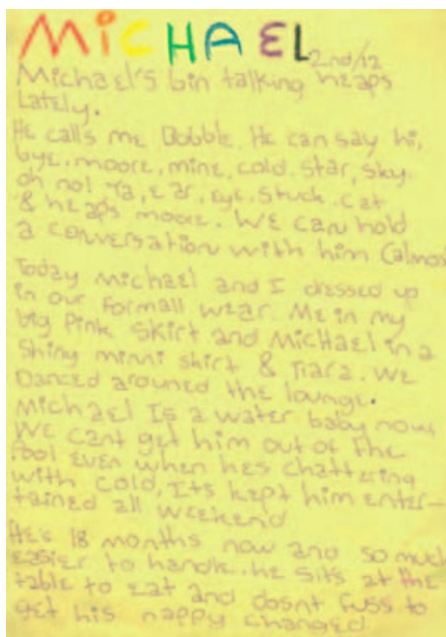 MiCHAEL
2nd/12
Michael's bin talking heaps
Lately.
He calls me Bobble. He can say hi,
bye, moore, mine, cold, star, sky
oh no! Ta, Ear, Eye, Stuck, Cat
& heaps moore. WE can hold
a conversation with him (almos
Today Michael and I dressed up
in our formall wear. Me in my
big Pink Skirt and MicHael in a
Shiny minni skirt & Tiara. We
Danced around the lounge.
Michael Is a water baby now
WE cant get him out of the
Pool even when hes chattering
with cold, Its kept him enter-
tained all weekend
He's 18 months now and so much
easier to handle. he sits at the
table to eat and dosnt fuss to
get his nappy changed